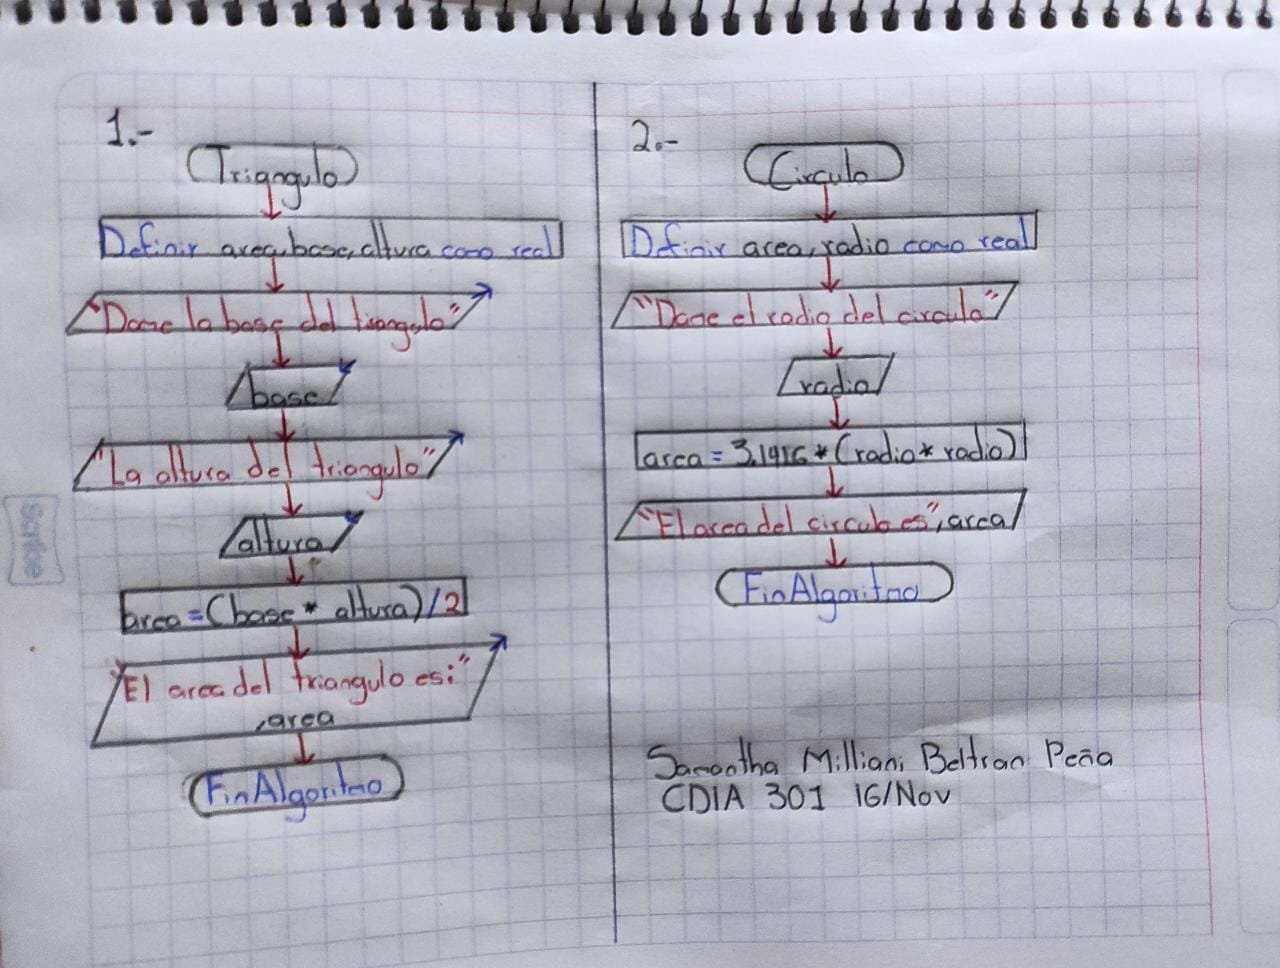 1.-
Triangulo
Definir area, base, altura como real
"Dame la base del triangulo"
base
"La altura del triangulo"
altura
area = (base * altura) / 2
"El area del triangulo es:"
, area
FinAlgoritmo
2.-
Circulo
Definir area, radio como real
"Dame el radio del circulo"
radio
area = 3.1416 * (radio * radio)
"El area del circulo es", area
FinAlgoritmo
Samantha Milliani Beltran Peña
CDIA 301 16/Nov
Scribe